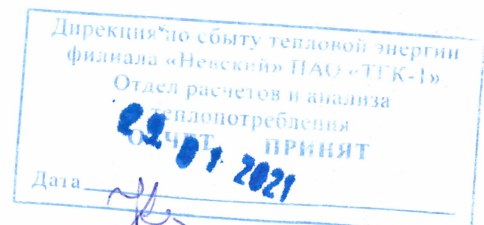 Дирекция по сбыту тепловой энергии
филиала «Невский» ПАО «ТГК-1»
Отдел расчетов и анализа
теплопотребления
ОТЧЕТ ПРИНЯТ
22 01 2021
Дата